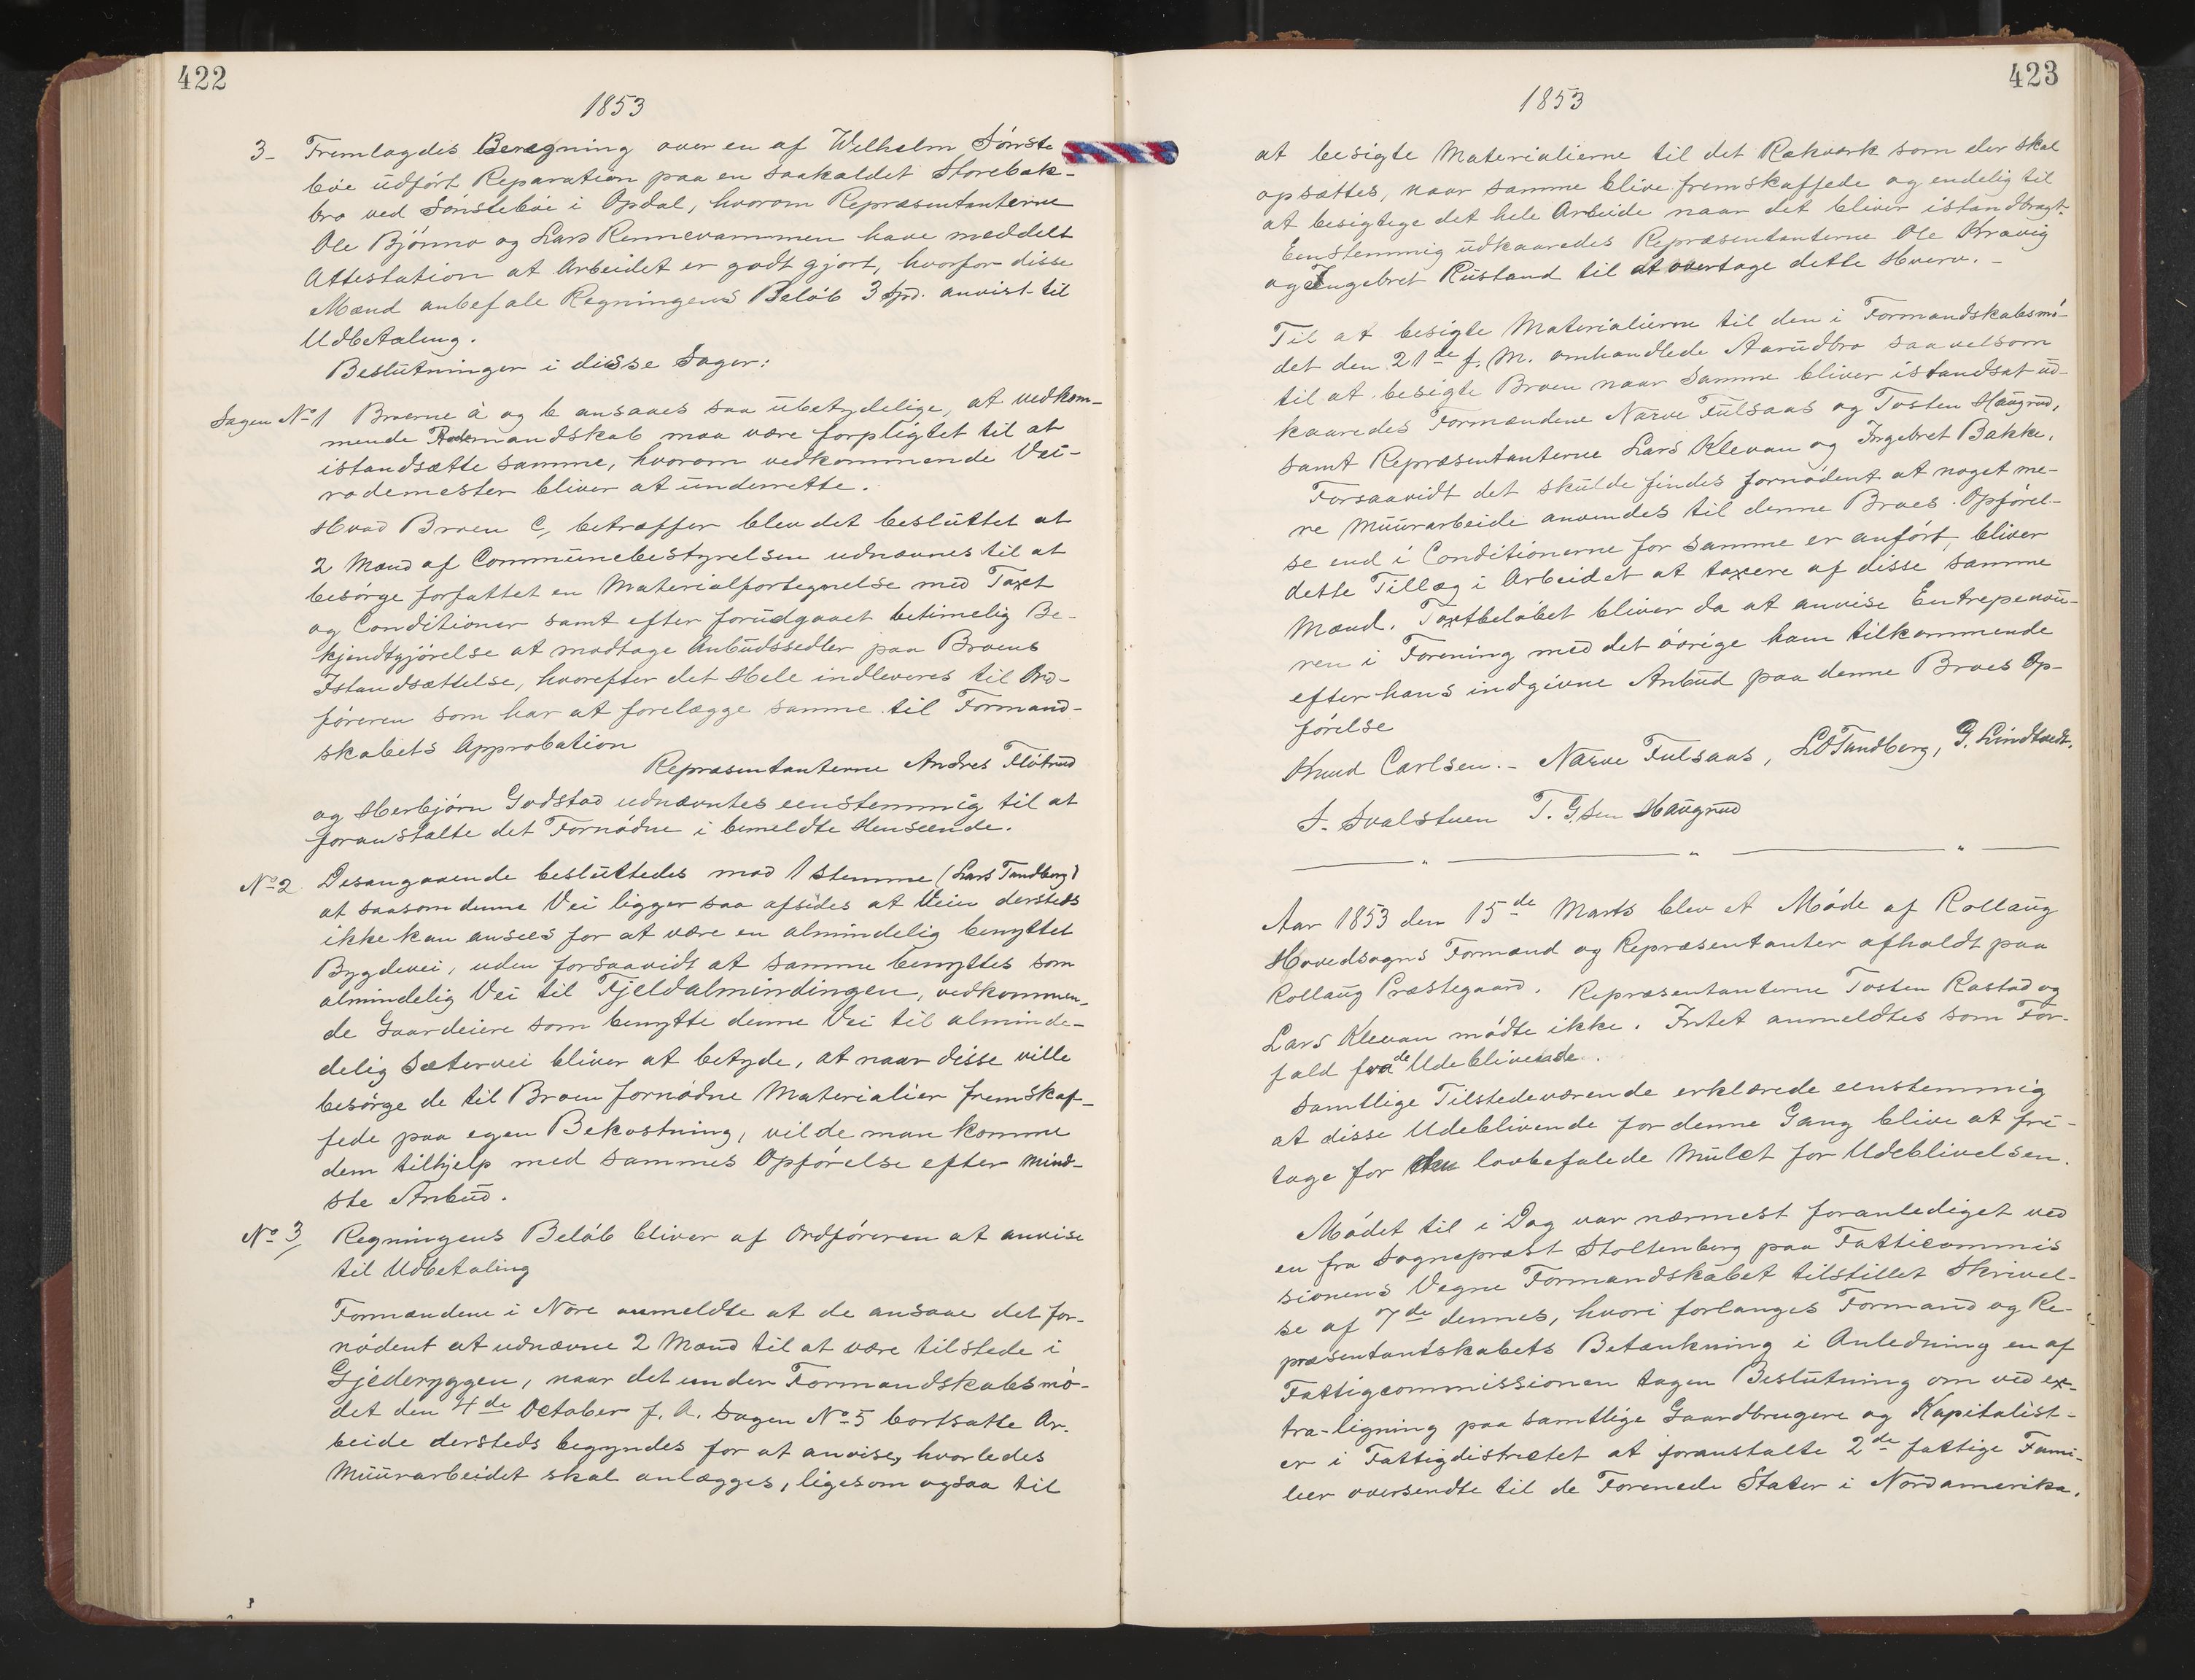 422
1853
3- Fremlagdes Beregning over en af Wilhelm Sønste
bøe udført Reparation paa en saakaldet Storebæk-
bro ved Sønstebøe i Opdal, hvorom Repræsentanterne
Ole Bjønno og Lars Rennevammen have meddelt
Attestation at Arbeidet er godt gjort, hvorfor disse
Mænd anbefale Regningens Beløb 3 Spd. anvist til
Udbetaling.
Beslutninger i disse Sager:
Sagen No 1 Broerne a og b ansaaes saa ubetydelige, at vedkom-
mende Rodemandskab maa være forpligtet til at
istandsætte samme, hvorom vedkommende Vei-
rodemester bliver at underrette.
Hvad Broen C, betræffer blev det besluttet at
2 Mænd af Communebestyrelsen udnævnes til at
besørge forfattet en Materialfortegnelse med Taxt
og Conditioner samt efter forudgaaet betimelig Be-
kjendtgjørelse at modtage Anbudssedler paa Broens
Istandsættelse, hvorefter det Hele indleveres til Ord-
føreren som har at forelægge samme til Formand-
skabets Approbation
Repræsentanterne Andres Fløtrud
og Herbjørn Godstad udnævntes eenstemmig til at
foranstalte det Fornødne i bemeldte Henseende.
No 2 Desangaaende besluttedes mod 1 stemme (Lars Tandberg)
at saasom denne Vei ligger saa afsides at Veien dersteds
ikke kan ansees for at være en almindelig benyttet
Bygdevei, uden forsaavidt at samme benyttes som
almindelig Vei til Fjeldalmindingen, vedkommen-
de Gaardeiere som benytte denne Vei til alminde-
delig Sætervei bliver at betyde, at naar disse ville
besørge de til Broen fornødne Materialier fremskaf-
fede paa egen Bekostning, vilde man komme
dem tilhjelp med sammes Opførelse efter mind-
ste Anbud.
No 3/ Regningens Beløb bliver af Ordføreren at anvise
til Udbetaling
Formændene i Nore anmeldte at de ansaae det for-
nødent at udnævne 2 Mænd til at være tilstede i
Gjederyggen, naar det under Formandskabsmø-
det den 4de October f. A. Sagen No 5 bortsatte Ar-
beide dersteds begyndes for at anvise, hvorledes
Muurarbeidet skal anlægges, ligesom ogsaa til
423
1853
at besigte Materialierne til det Rækværk som der skal
opsættes, naar samme blive fremskaffede og endelig til
at besigtige det hele Arbeide naar det bliver istandbragt.
Eenstemmig udkaaredes Repræsentanterne Ole Kravig
og Ingebret Rustand til at overtage dette Hverv. -
Til at besigte Materialierne til den i Formandskabsmø-
det den 21de f. M. omhandlede Aarudbro saavelsom
til at besigte Broen naar samme bliver istandsat ud-
kaaredes Formændene Narve Fulsaas og Tosten Haugrud,
samt Repræsentanterne Lars Klevan og Ingebret Bakke.
Forsaavidt det skulde findes fornødent at noget me-
re Muurarbeide anvendes til denne Broes Opførel-
se end i Conditionerne for samme er anført, bliver
dette Tillæg i Arbeidet at taxere af disse samme
Mænd. Taxtbeløbet bliver da at anvise Entrepenøu-
ren i Forening med det øvrige ham tilkommende
efter hans indgivne Anbud paa denne Broes Op-
førelse
Knud Carlsen. - Narve Fulsaas, L O Tandberg, G. Lindtvedt.
S. Svalstuen T. G.Sen Haugrud
Aar 1853 den 15de Marts blev et Møde af Rollaug
Hovedsogns Formænd og Repræsentanter afholdt paa
Rollaug Præstegaard. Repræsentanterne Tosten Rastad og
Lars Klevan mødte ikke. Intet anmeldtes som For-
fald fra de Udeblivende.
Samtlige Tilstedeværende erklærede eenstemmig
at disse Udeblivende for denne Gang blive at fri-
tage for den lovbefalede Mulct for Udeblivelsen.
Mødet til i Dag var nærmest foranlediget ved
en fra Sognepræst Stoltenberg paa Fatticommis
sionens Vegne Formandskabet tilstillet Skrivel-
se af 7de dennes, hvori forlanges Formand og Re-
præsentantskabets Betænkning i Anledning en af
Fattigcommissionen tagen Beslutning om ved ex-
tra-ligning paa samtlige Gaardbrugere og Kapitalist-
er i Fattigdistrictet at foranstalte 2de fattige Fami-
lier oversendte til de Forenede Stater i Nordamerika.